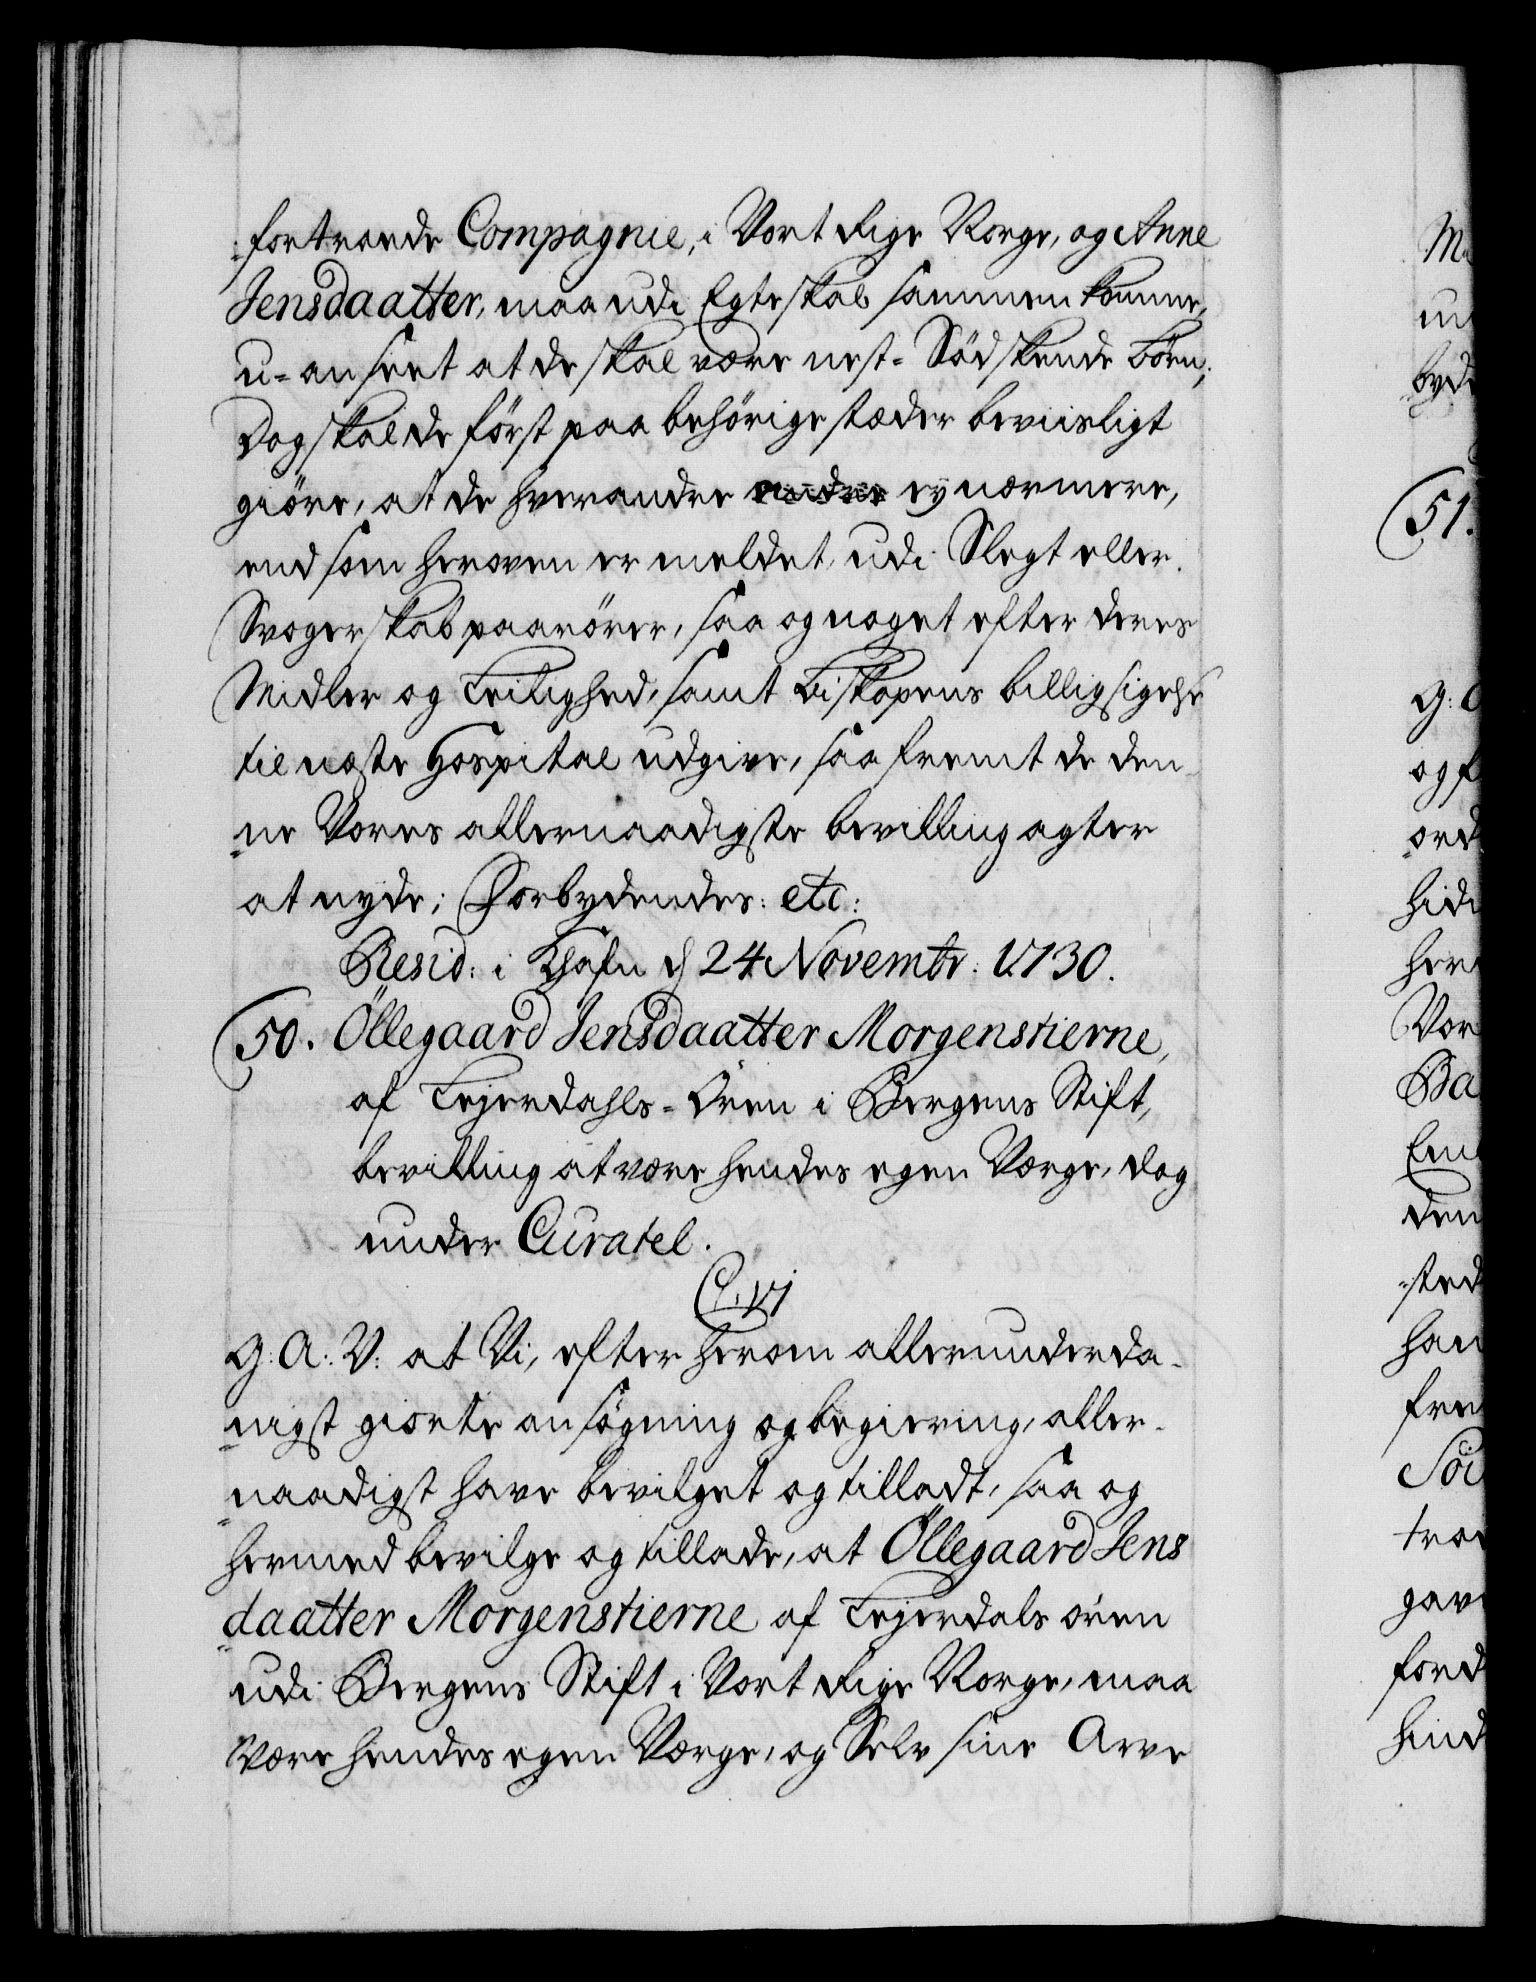 fortroede Compagnie, i Vort Rige Norge, og Anne
Jensdaatter, maa udi Egteskab sammen komme,
u-anseet at de skal være nest-Södskende Börn;
Dog skal de först paa behörige stæder beviisligt
giöre, at de hverandre ey nærmere,
end som heroven er meldet, udi Slegt eller
Svogerskab paarörer, saa og noget efter deres
Midler og Leilighed, samt Biskopens billigsigelse
til næste Hospital udgive, saafremt de den-
ne Vores allernaadigste bevilling agter
at nyde; Forbydendes: etc:
Resid: i Khafn d 24 Novembr: 1730.
50. Öllegaard Jensdaatter Morgenstierne,
af Lejerdahls-Ören i Bergens Stift,
bevilling at være hendes egen Værge, dog
under Curatel.
C. VI
G: A: V: at Vi, efter herom allerunderda-
nigst giorte ansögning og begiering, aller-
naadigst have bevilget og tilladt, saa og
hermed bevilge og tillade, at Öllegaard Jens
daatter Morgenstierne af Lejerdals ören
udi Bergens Stift i Vort Rige Norge, maa
være hendes egen Værge, og Selv sine Arve
51.